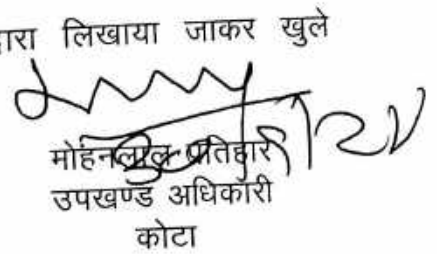 द्वारा लिखाया जाकर खुले
मोहनलाल प्रतिहार
उपखण्ड अधिकारी
कोटा